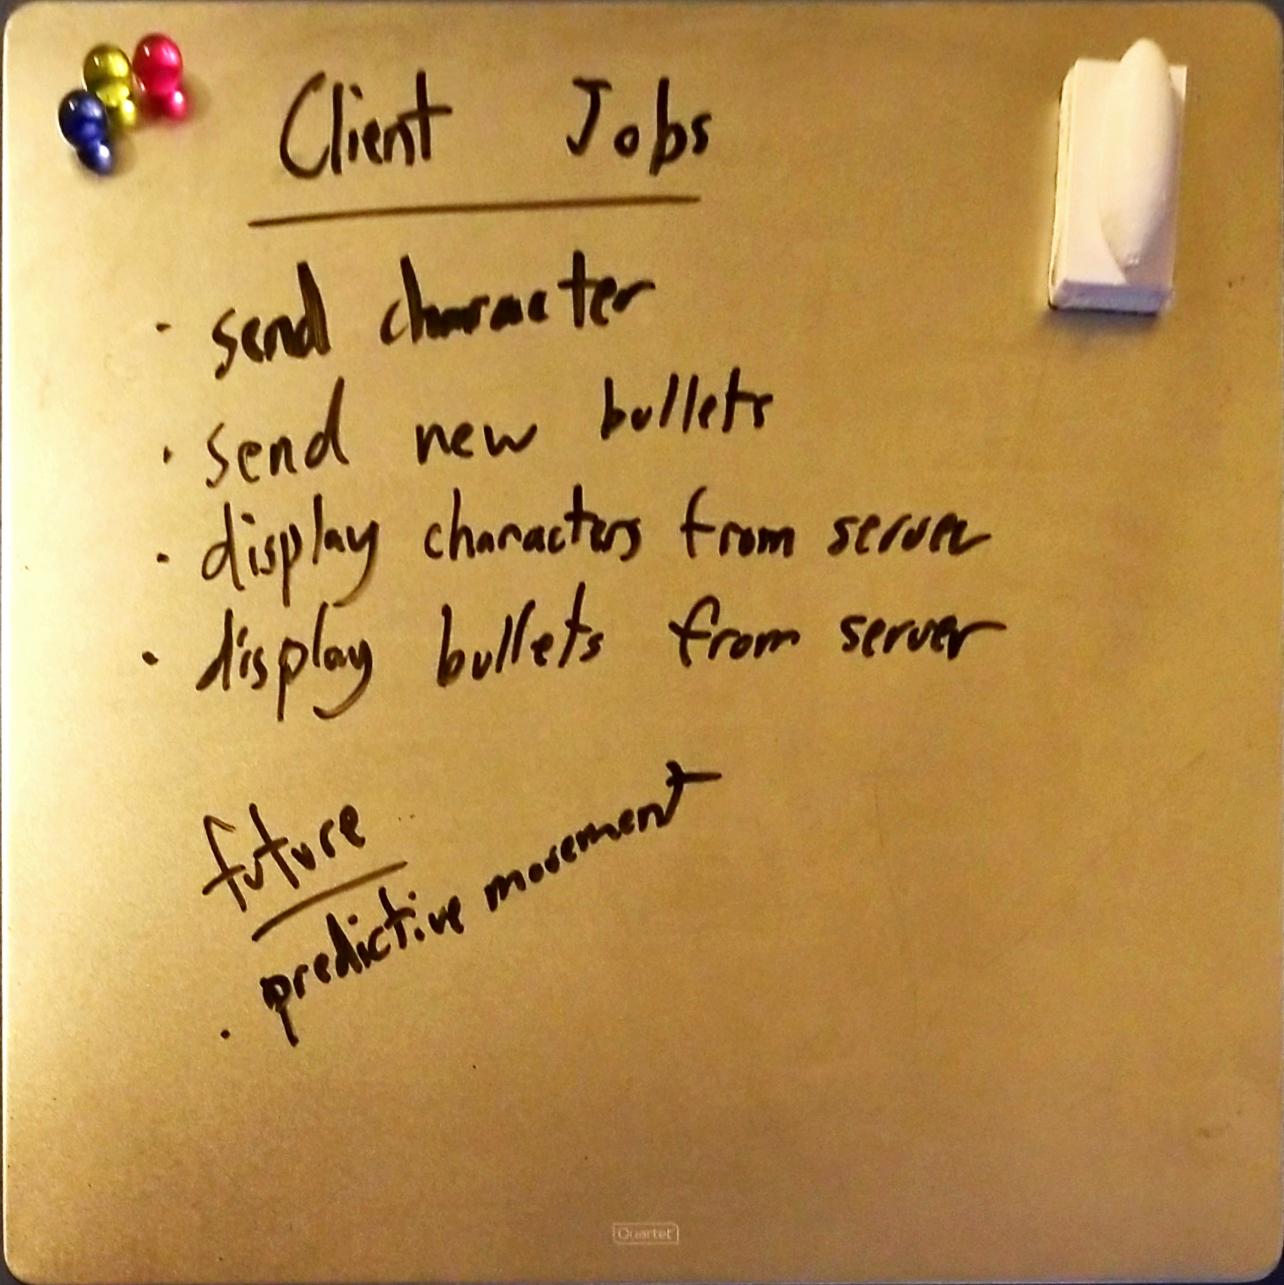 Client Jobs
· send character
· send new bullets
· display characters from server
· display bullets from server
future
· predictive movement
Quartet